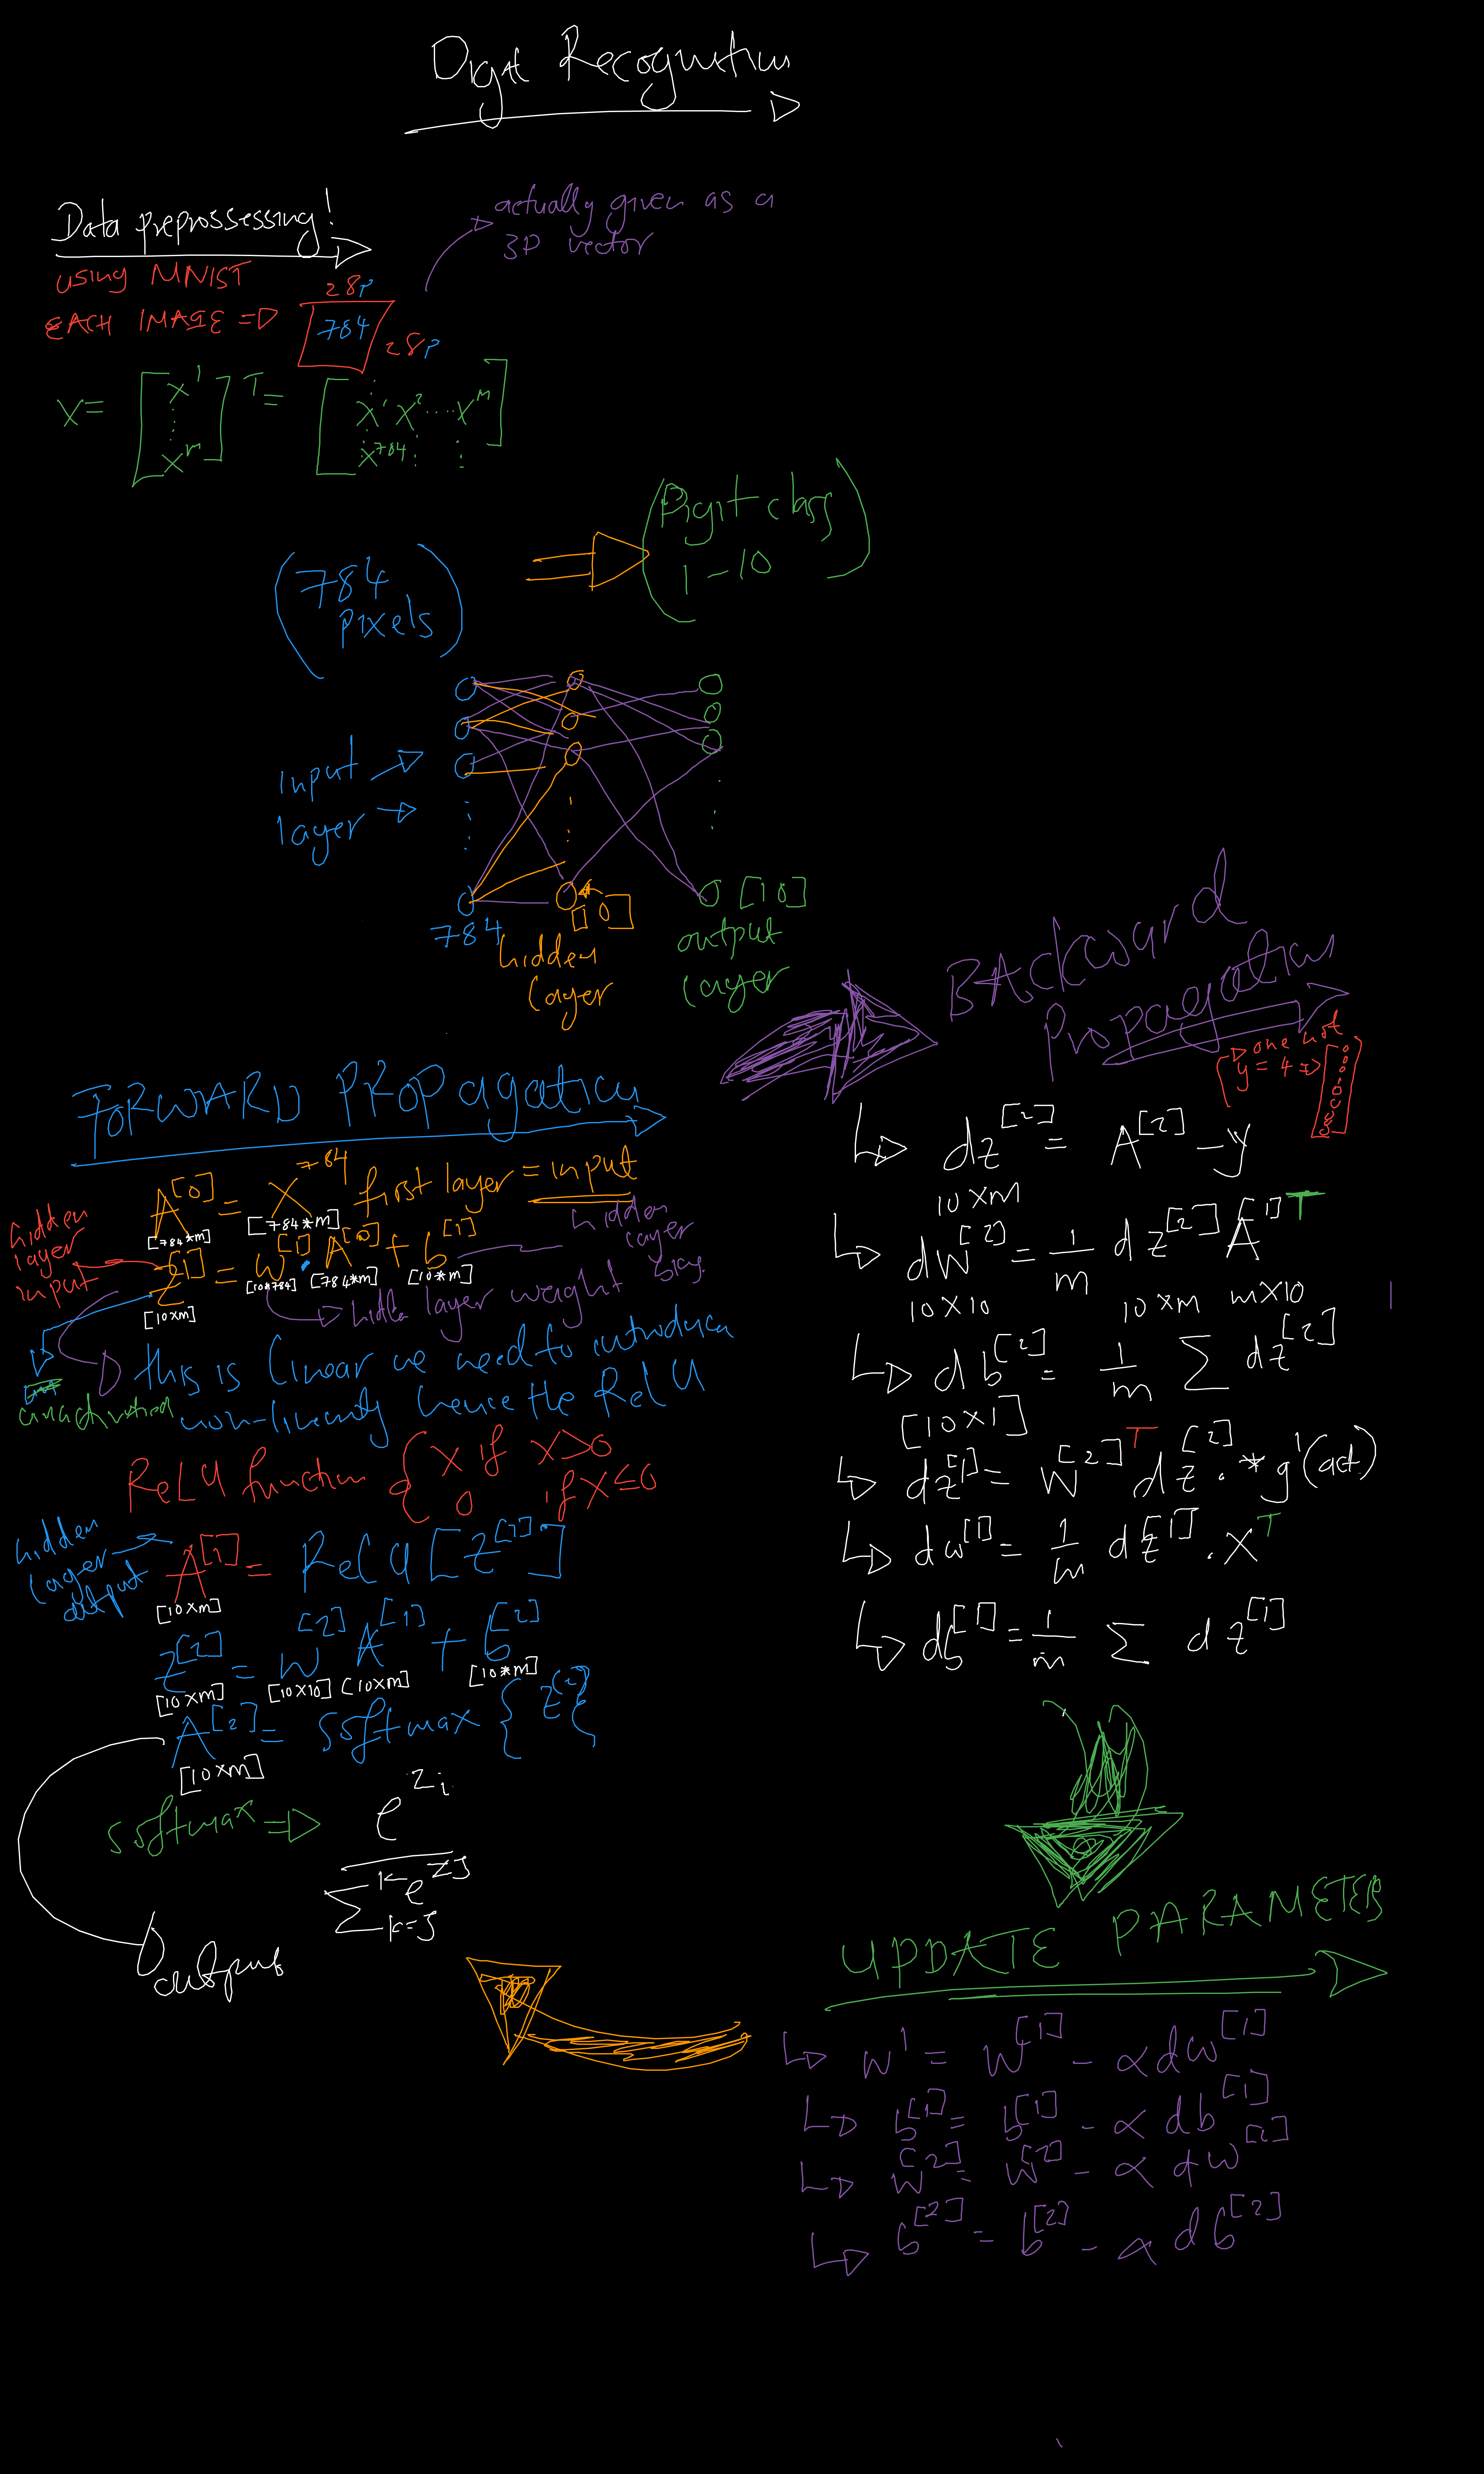 Digit Recognition
Data preprossessing!
actually given as a
3D vector
using MNIST
EACH IMAGE =>
28P
784
28P
X = [x^1 ⋮ x^m]^T = [x^1 x^2 .... x^m
x^784 ⋮ ⋮]
(784
pixels)
(Digit class
1-10)
Input
layer
784
[10]
hidden
layer
[10]
output
layer
FORWARD PROPagation
A^[0] = X^784 first layer = input
[784*m] [784*m]
hidden
layer
input
Z^[1] = W^[1] . A^[0] + b^[1]
[10xm] [10*784] [784*m] [10*m]
hidden
layer
bias
hidden layer weight
this is linear we need to introduce
non-linearity hence the ReLU
unactivated
ReLU function { X if X>0
0 if X≤0
hidden
layer
output
A^[1] = ReLU[Z^[1]]
[10xm]
Z^[2] = W^[2] A^[1] + b^[2]
[10xm] [10x10] [10xm] [10*m]
A^[2] = softmax { Z^[2] }
[10xm]
softmax => e^zi
∑^K_K=J e^zJ
output
BAckward
Propagation
one hot
y = 4 =>
dz^[2] = A^[2] - y
10xm
dW^[2] = 1/m dz^[2] A^[1]T
10x10 10xm mx10
db^[2] = 1/m ∑ dz^[2]
[10x1]
dz^[1] = W^[2]T dz^[2] .* g'(act)
dw^[1] = 1/m dz^[1] . X^T
db^[1] = 1/m ∑ dz^[1]
UPDATE PARAMETERS
w^1 = w^[1] - αdw^[1]
b^[1] = b^[1] - αdb^[1]
w^[2] = w^[2] - αdw^[2]
b^[2] = b^[2] - αdb^[2]